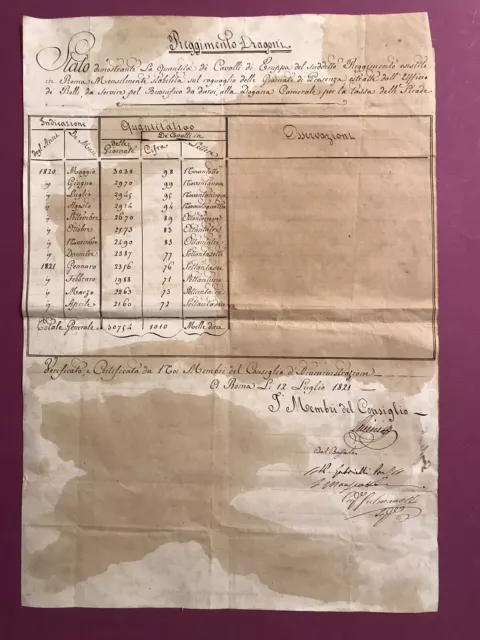 Reggimento Dragoni
Stato dimostrante La Quantità di Cavalli di Truppa del suddetto Reggimento esistiti
in Roma Mensilmente stabilita sul ragguaglio delle Giornate di Presenza estratte dall'Officio
de Rolli, da servire pel Buonifico da darsi alla Dogana Camerale per la tassa delle Strade
Indicazione Quantitativo Osservazioni
De Cavalli in
dell' Anno De Mesi delle Giornate Cifra Lettera
1820 Maggio 3038 98 Novantotto
" Giugno 2970 99 Novantanove
" Luglio 2945 95 Novantacinque
" Agosto 2914 94 Novantaquattro
" Settembre 2670 89 Ottantanove
" Ottobre 2573 83 Ottantatre
" Novembre 2490 83 Ottantatre
" Decembre 2387 77 Settantasette
1821 Gennaro 2356 76 Settantasei
" Febbraro 1988 71 Settantuno
" Marzo 2263 73 Settantatre
" Aprile 2160 72 Settantadue
Totale Generale 30754 1010 Mille dieci
Verificato e Certificato da Noi Membri del Consiglio d'Amministrazione
A Roma Li 12 Luglio 1821
I Membri del Consiglio
Gabrielli